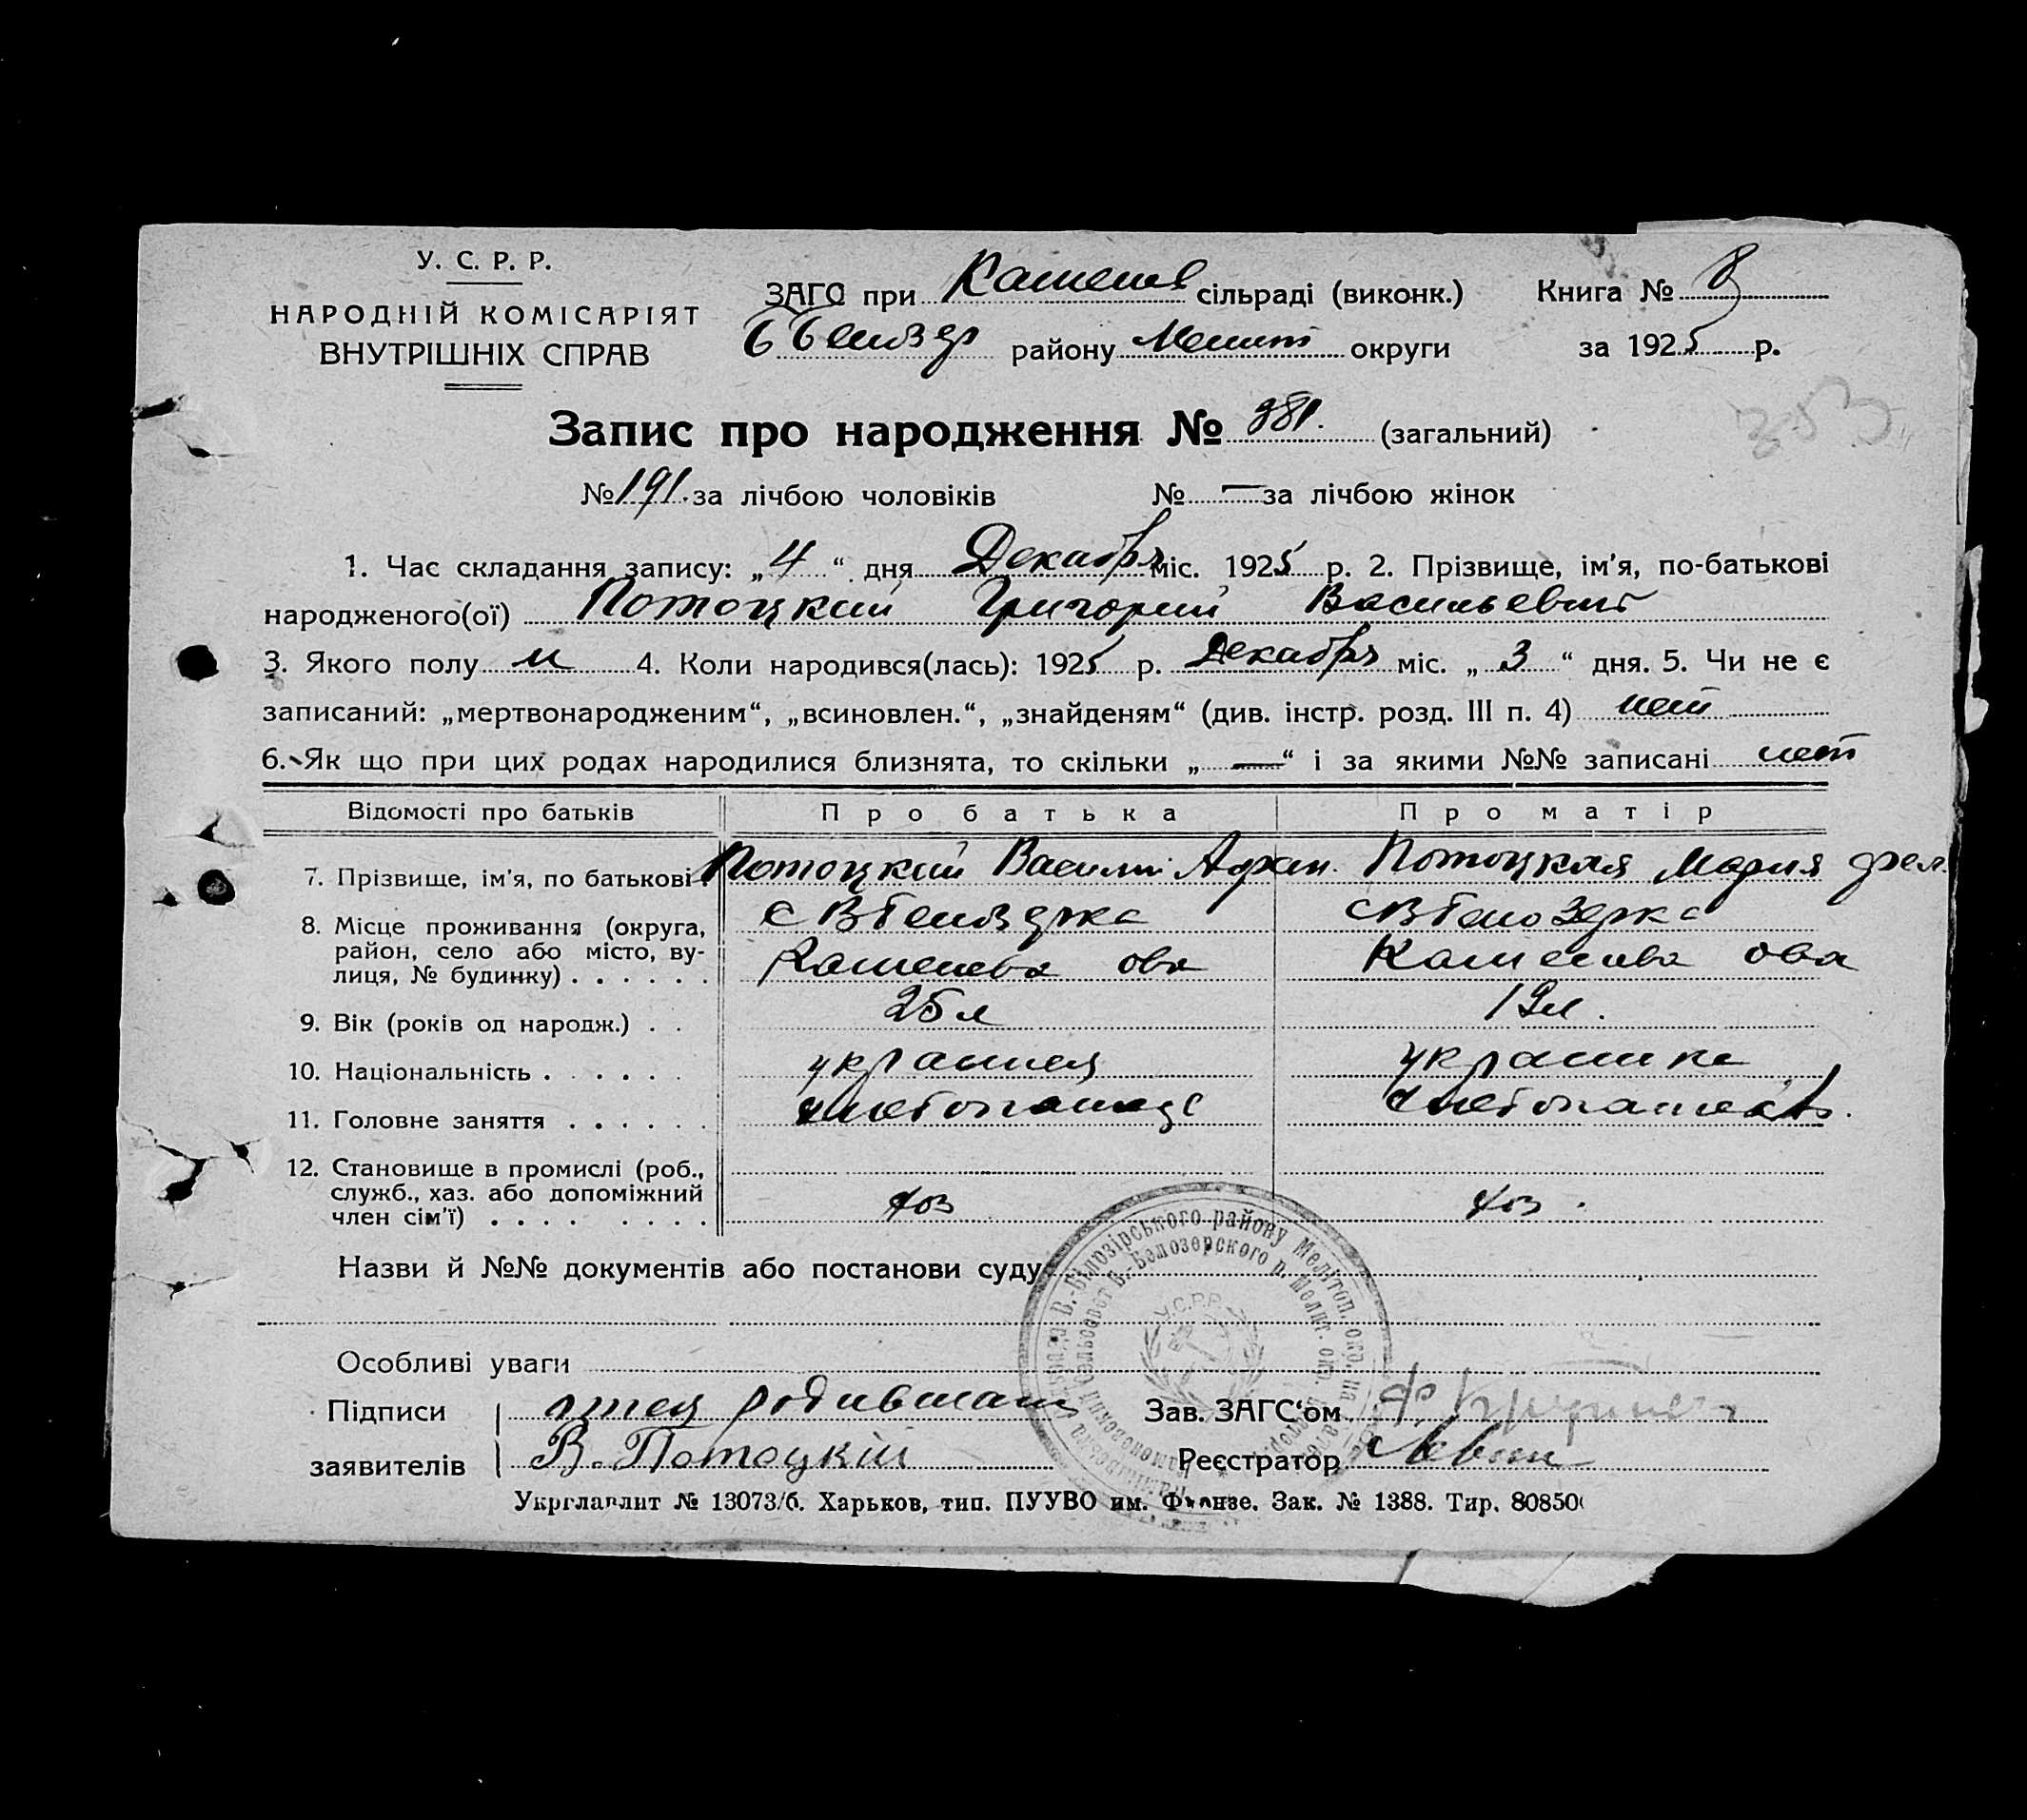 У. С. Р. Р.
НАРОДНІЙ КОМІСАРІЯТ
ВНУТРІШНІХ СПРАВ
ЗАГС при сільраді (виконк.)
району Мелит округи
Книга № 8
за 1925 р.
353
Запис про народження № 381. (загальний)
№ 191. за лічбою чоловіків № — за лічбою жінок
1. Час складання запису: „4“ дня Декабря міс. 1925 р. 2. Прізвище, ім’я, по-батькові
народженого(ої) Потоцкий Григорий Васильевич
3. Якого полу м 4. Коли народився(лась): 1925 р. Декабря міс. „3“ дня. 5. Чи не є
записаний: „мертвонародженим“, „всиновлен.“, „знайденям“ (див. інстр. розд. III п. 4) нет
6. Як що при цих родах народилися близнята, то скільки „—“ і за якими №№ записані нет
Відомості про батьків Про батька Про матір
7. Прізвище, ім’я, по батькові. Потоцкий Васили Афан. Потоцкая Мария
8. Місце проживання (округа,
район, село або місто, ву-
лиця, № будинку) . . . . . .
9. Вік (років од народж.) . . 25 л 19 л.
10. Національність . . . . . . украинец украинка
11. Головне заняття . . . . . .
12. Становище в промислі (роб.,
служб., хаз. або допоміжний
член сім’ї) . . . . . . . . хоз хоз.
Назви й №№ документів або постанови суду
Особливі уваги
Підписи
заявителів
отец родившаго
В. Потоцкій
Зав. ЗАГС‘ом
Реєстратор
У.С.Р.Р.
Укрглавлит № 13073/б. Харьков, тип. ПУУВО им. Фрунзе. Зак. № 1388. Тир. 80850